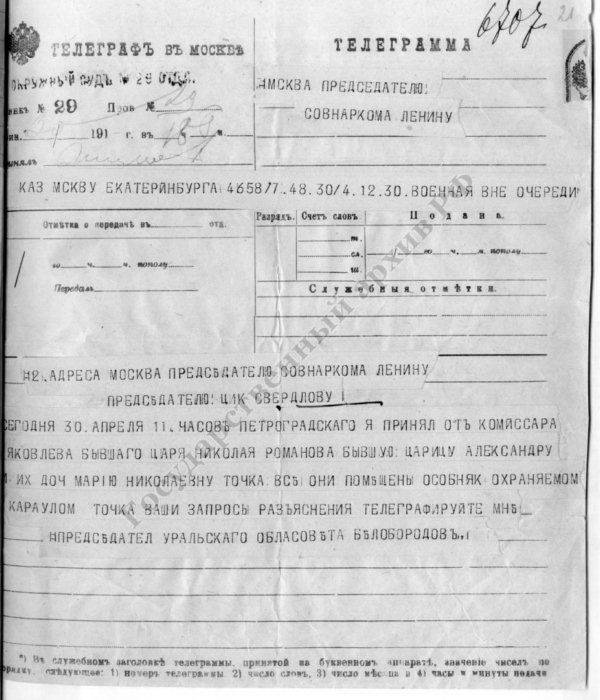 6707
21
ТЕЛЕГРАФЪ ВЪ МОСКВѢ
ТЕЛЕГРАММА
ОКРУЖНЫЙ СУДЪ № 29 ОТДЛ.
№ 29 Пров №
191 г. въ
МСКВА ПРЕДСЕДАТЕЛЮ
СОВНАРКОМА ЛЕНИНУ
КАЗ МСКВУ ЕКАТЕРИНБУРГА 4658/7 .48.30/4.12.30.ВОЕННАЯ ВНЕ ОЧЕРЕДИ
Отмѣтка о передачѣ въ отд.
ч. м. пополу
Передалъ
Разрядъ. Счетъ словъ. Подана.
т.
сл.
ш.
го ч. м. пополу
Служебныя отмѣтки.
Н2.АДРЕСА МОСКВА ПРЕДСѢДАТЕЛЮ СОВНАРКОМА ЛЕНИНУ
ПРЕДСѢДАТЕЛЮ ЦИК СВЕРДЛОВУ
СЕГОДНЯ 30 АПРЕЛЯ 11. ЧАСОВЪ ПЕТРОГРАДСКАГО Я ПРИНЯЛ ОТЪ КОМИССАРА
ЯКОВЛЕВА БЫВШАГО ЦАРЯ НИКОЛАЯ РОМАНОВА БЫВШУЮ ЦАРИЦУ АЛЕКСАНДРУ
И ИХ ДОЧ МАРІЮ НИКОЛАЕВНУ ТОЧКА ВСѢ ОНИ ПОМѢЩЕНЫ ОСОБНЯК ОХРАНЯЕМОМ
КАРАУЛОМ ТОЧКА ВАШИ ЗАПРОСЫ РАЗЪЯСНЕНИЯ ТЕЛЕГРАФИРУЙТЕ МНѢ
ПРЕДСѢДАТЕЛ УРАЛЬСКАГО ОБЛАСОВѢТА БѢЛОБОРОДОВЪ
*) Въ служебномъ заголовкѣ телеграммы, принятой на буквенномъ аппаратѣ, значеніе чиселъ по
порядку слѣдующее: 1) номеръ телеграммы 2) число словъ, 3) число мѣсяца и 4) часы и минуты подачи
Государственный архив РФ